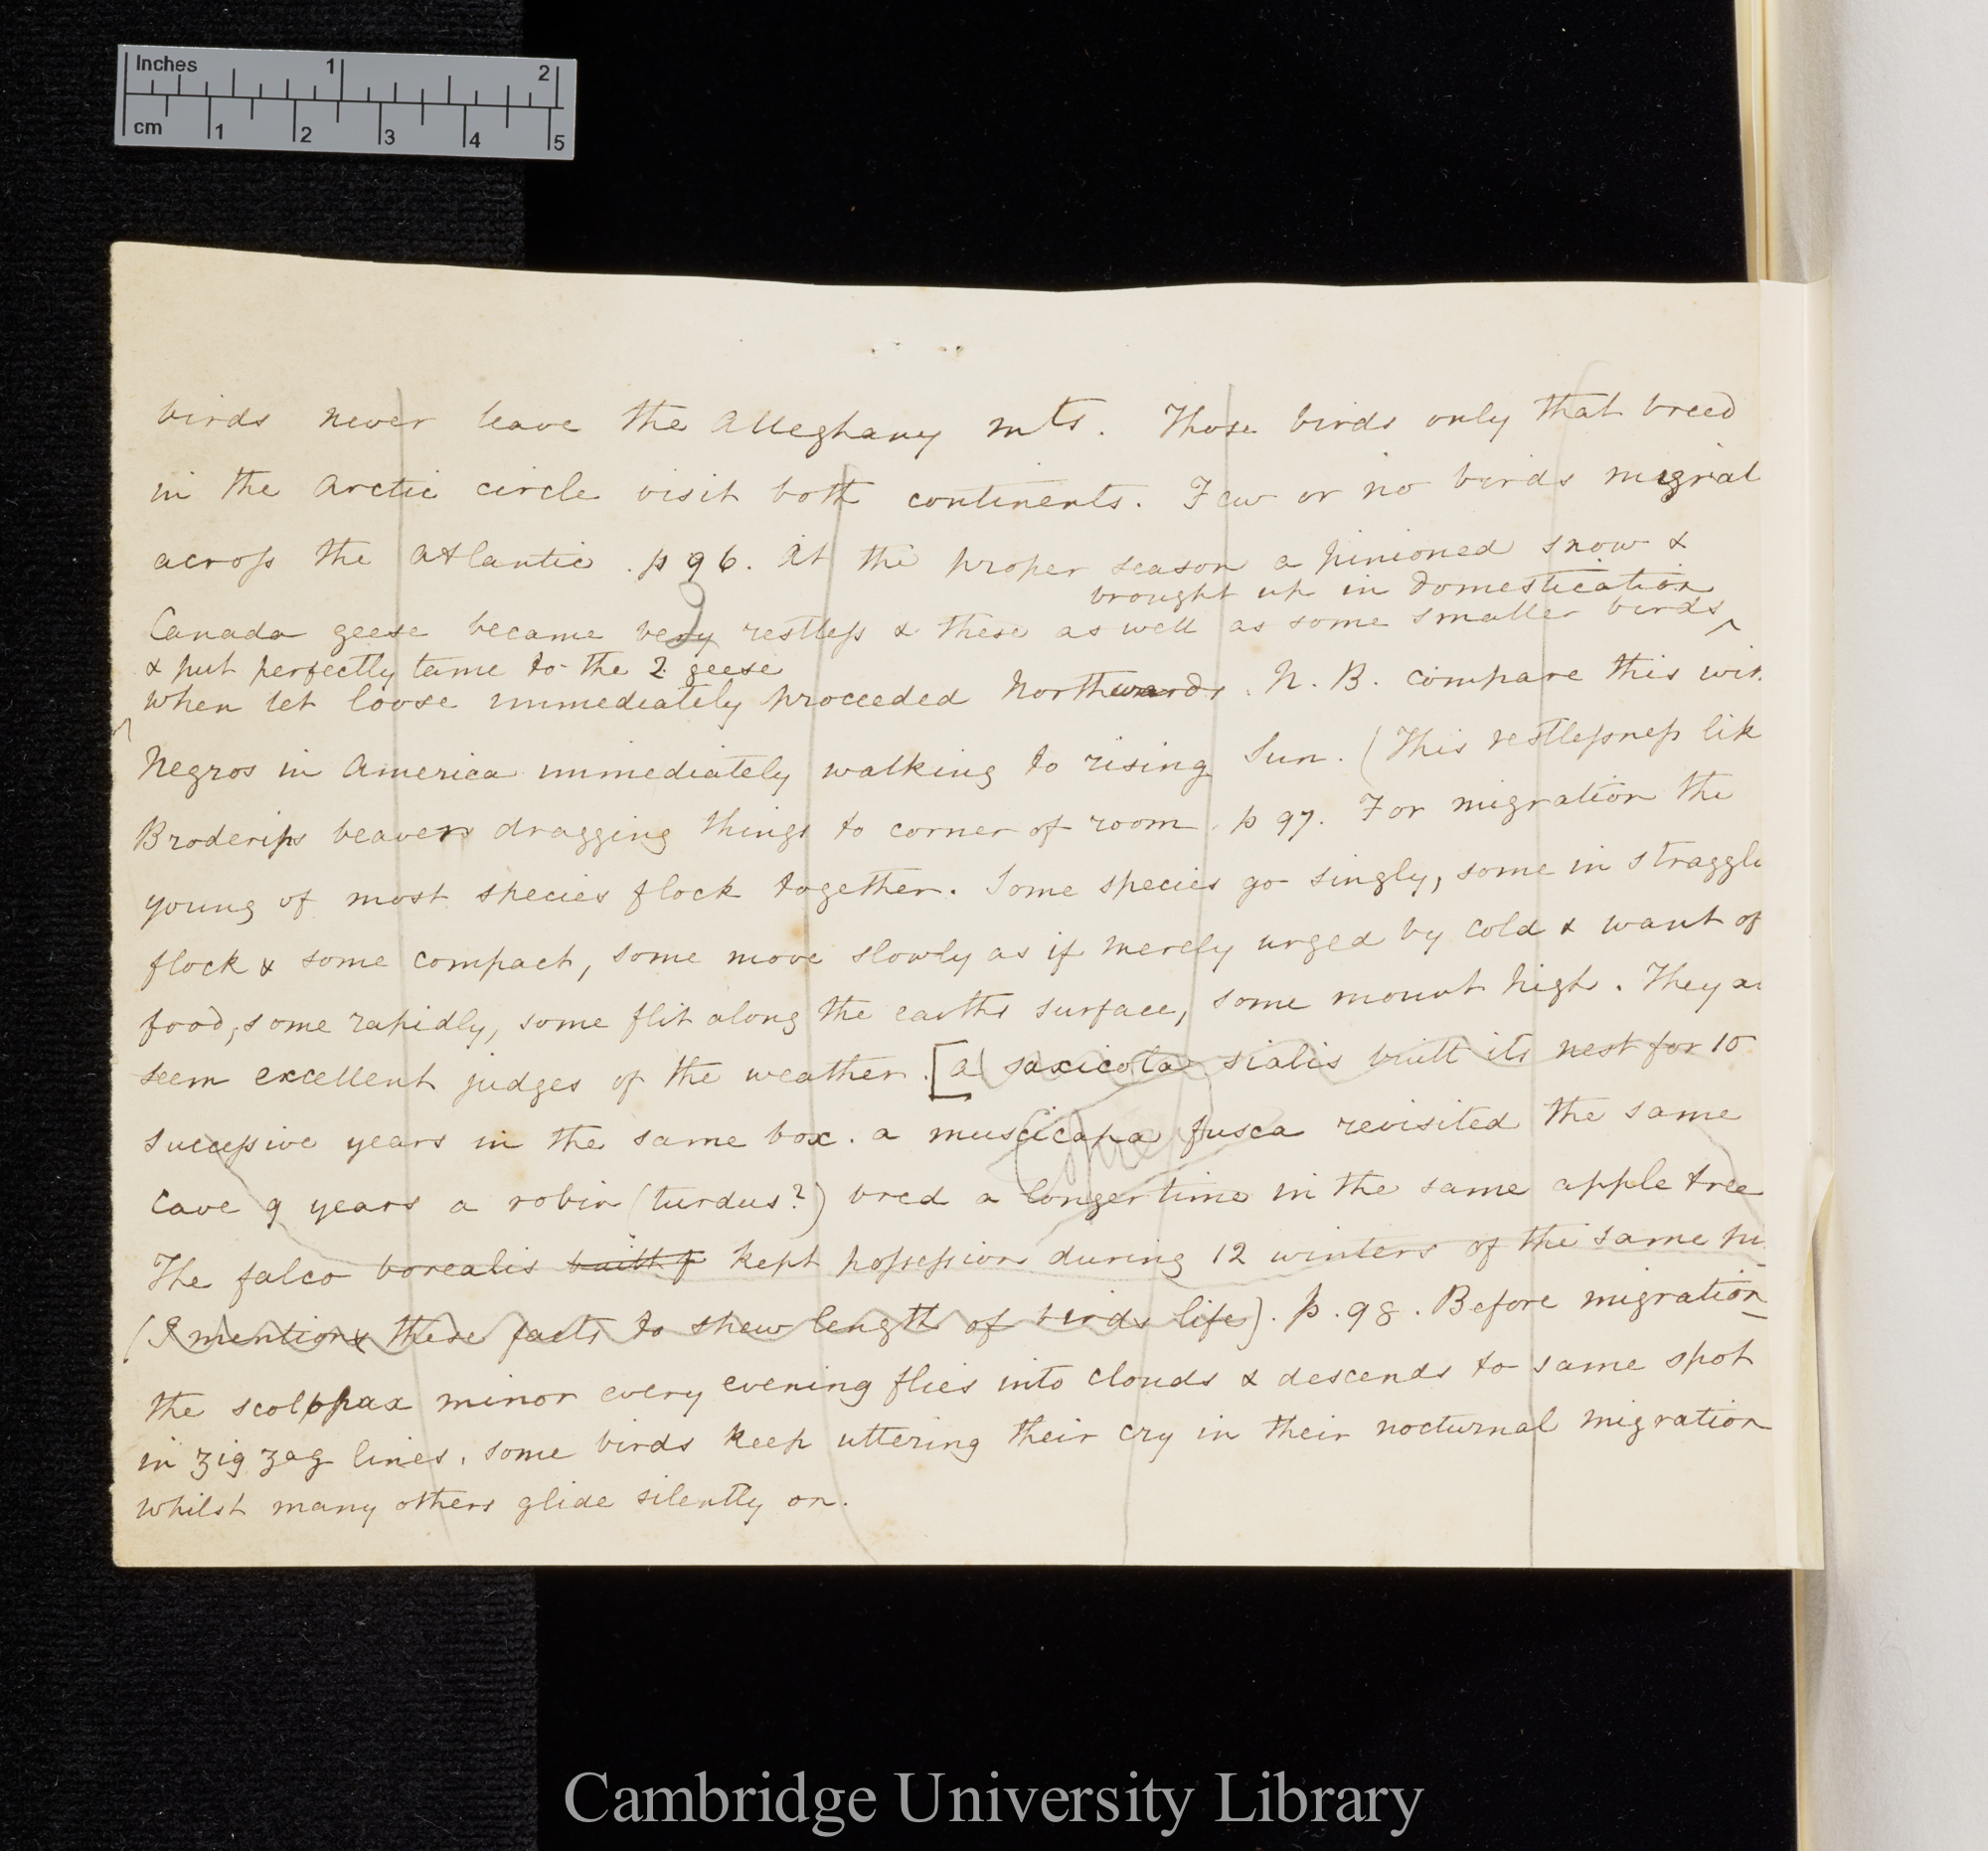 Inches 1 2
cm 1 2 3 4 5
birds never leave the Alleghany mts. Those birds only that breed
in the Arctic circle visit both continents. Few or no birds migrat
across the Atlantic. p 96. At the proper season a pinioned snow &
brought up in domestication
Canada geese became very restless & these as well as some smaller birds ^
& put perfectly tame to the 2 geese
when let loose immediately proceeded Northwards. N.B. compare this wit
Negros in America immediately walking to rising Sun. (This restlessness lik
Broderips beavers dragging things to corner of room. p 97. For migration the
young of most species flock together. Some species go singly, some in straggle
flock & some compact, some move slowly as if merely urged by cold & want of
food, some rapidly, some flit along the earths surface, some mount high. They a
seem excellent judges of the weather. [a saxicola sialis built its nest for 10
successive years in the same box. a muscicapa fusca revisited the same
cave 9 years a robin (turdus?) bred a longer time in the same apple tree
The falco borealis built f kept possession during 12 winters of the same
(I mention these facts to shew length of birds life). p. 98. Before migration
the scolopax minor every evening flies into clouds & descends to same spot
in zig zag lines, some birds keep uttering their cry in their nocturnal migration
whilst many others glide silently on.
Cambridge University Library